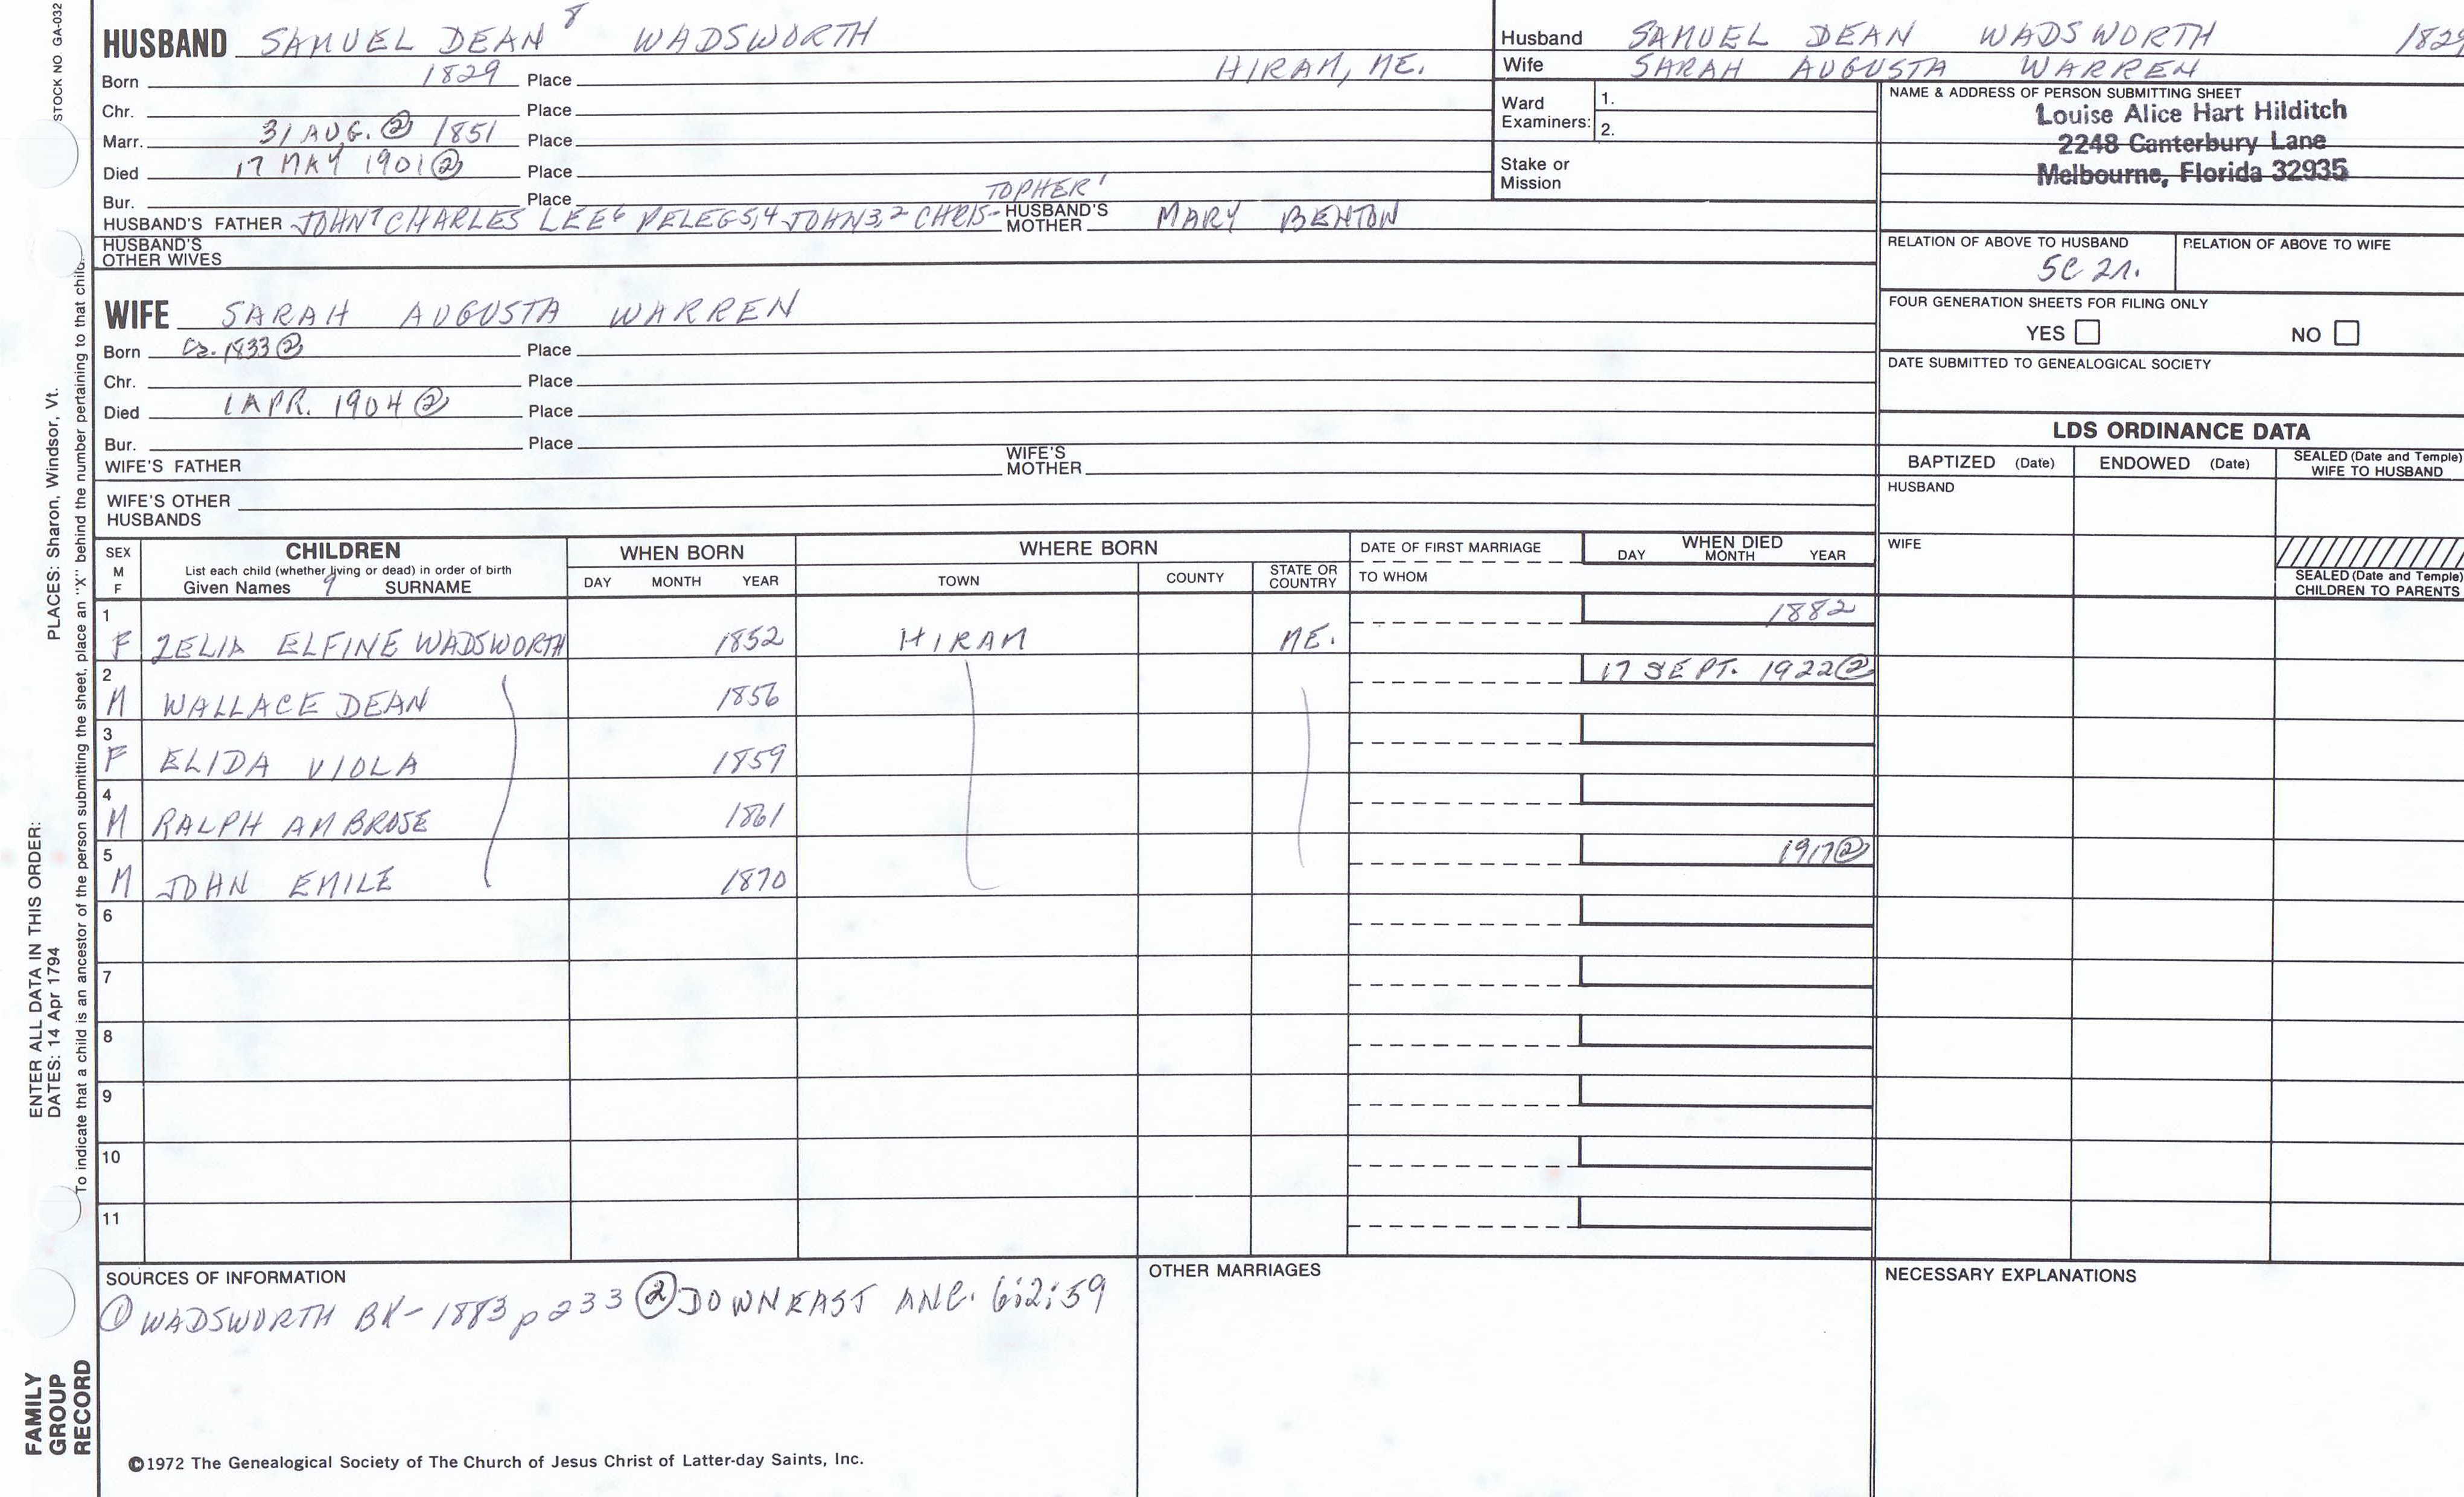 STOCK NO. GA-032
PLACES: Sharon, Windsor, Vt.
ENTER ALL DATA IN THIS ORDER:
DATES: 14 Apr 1794
To indicate that a child is an ancestor of the person submitting the sheet, place an "X" behind the number pertaining to that child.
FAMILY
GROUP
RECORD
HUSBAND SAMUEL DEAN 8 WADSWORTH
Born 1829 Place HIRAM, ME.
Chr. Place
Marr. 31 AUG. ② 1851 Place
Died 17 MAY 1901 ② Place
Bur. Place
TOPHER 1
HUSBAND'S FATHER JOHN 7 CHARLES LEE 6 PELEG 5,4 JOHN 3,2 CHRIS- HUSBAND'S MOTHER MARY BENTON
HUSBAND'S
OTHER WIVES
WIFE SARAH AUGUSTA WARREN
Born Ca. 1833 ② Place
Chr. Place
Died 1 APR. 1904 ② Place
Bur. Place
WIFE'S FATHER WIFE'S MOTHER
WIFE'S OTHER
HUSBANDS
Husband SAMUEL DEAN WADSWORTH 1829
Wife SARAH AUGUSTA WARREN
Ward
Examiners: 1.
2.
Stake or
Mission
NAME & ADDRESS OF PERSON SUBMITTING SHEET
Louise Alice Hart Hilditch
2248 Canterbury Lane
Melbourne, Florida 32935
RELATION OF ABOVE TO HUSBAND RELATION OF ABOVE TO WIFE
5C 2r.
FOUR GENERATION SHEETS FOR FILING ONLY
YES NO
DATE SUBMITTED TO GENEALOGICAL SOCIETY
LDS ORDINANCE DATA
BAPTIZED (Date) ENDOWED (Date) SEALED (Date and Temple) WIFE TO HUSBAND
HUSBAND
WIFE
SEALED (Date and Temple)
CHILDREN TO PARENTS
SEX
M
F
CHILDREN
List each child (whether living or dead) in order of birth
Given Names 9 SURNAME
WHEN BORN
DAY MONTH YEAR
WHERE BORN
TOWN COUNTY STATE OR COUNTRY
DATE OF FIRST MARRIAGE
TO WHOM
WHEN DIED
DAY MONTH YEAR
1 1882
F ZELIA ELFINE WADSWORTH 1852 HIRAM ME.
2 17 SEPT. 1922 ②
M WALLACE DEAN 1856
3
F ELIDA VIOLA 1859
4
M RALPH AMBROSE 1861
5 1917 ②
M JOHN EMILE 1870
6
7
8
9
10
11
SOURCES OF INFORMATION
① WADSWORTH BK- 1883 p 233 ② DOWNEAST ANC. 6:2:59
OTHER MARRIAGES
NECESSARY EXPLANATIONS
©1972 The Genealogical Society of The Church of Jesus Christ of Latter-day Saints, Inc.